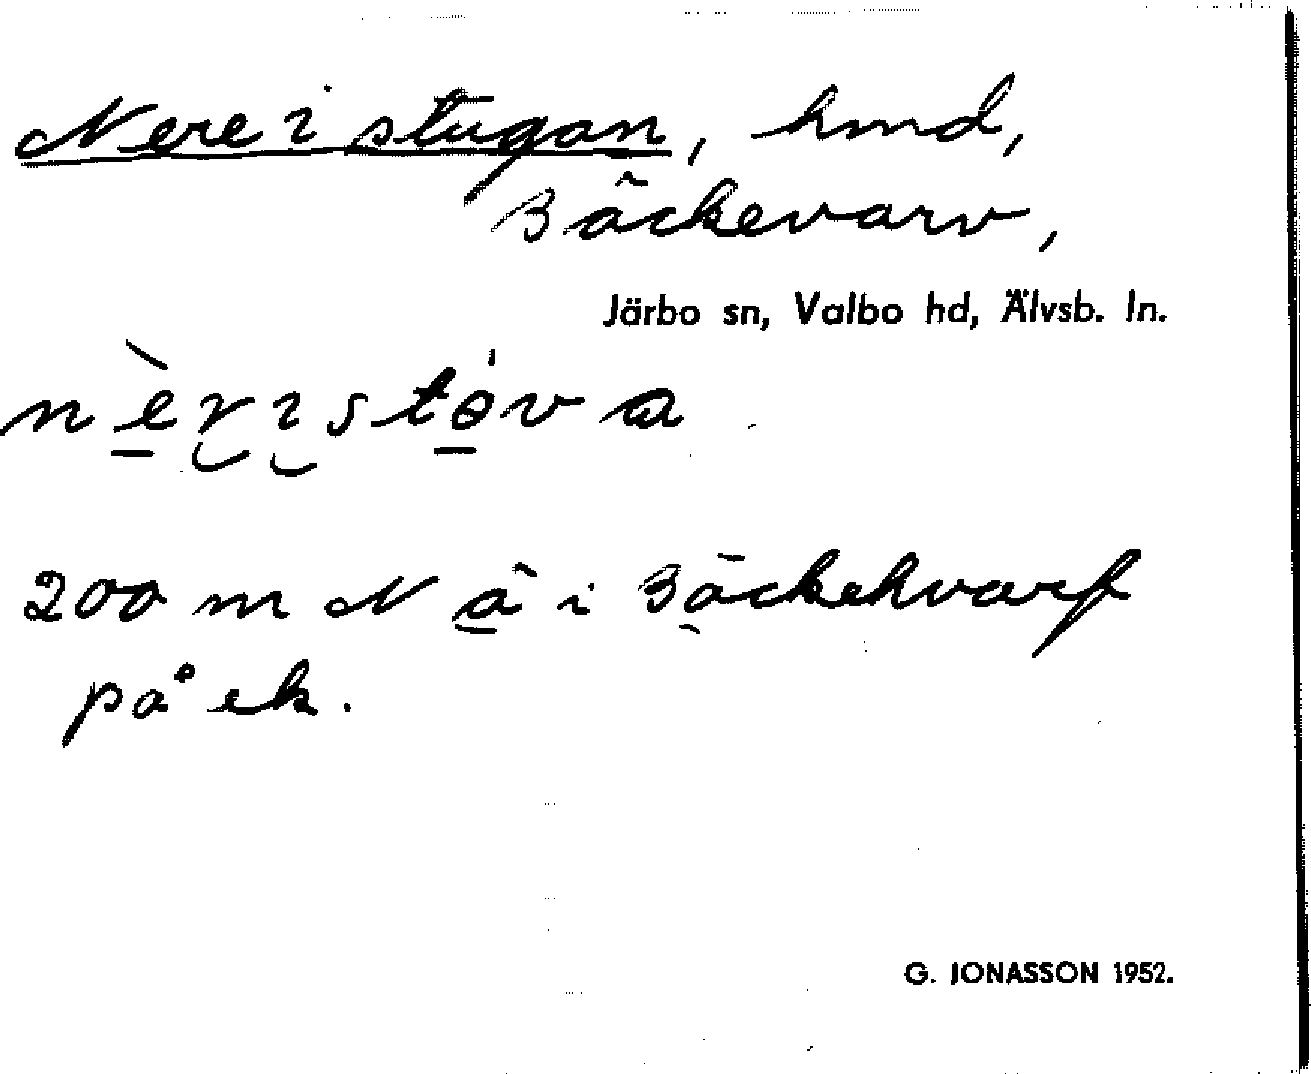 Nere i stugan, hmd,
Bäckevarv,
Järbo sn, Valbo hd, Älvsb. ln.
nè̱rıstó̱va
200 m N ä i Bäckehvarf
på ek.
G. JONASSON 1952.